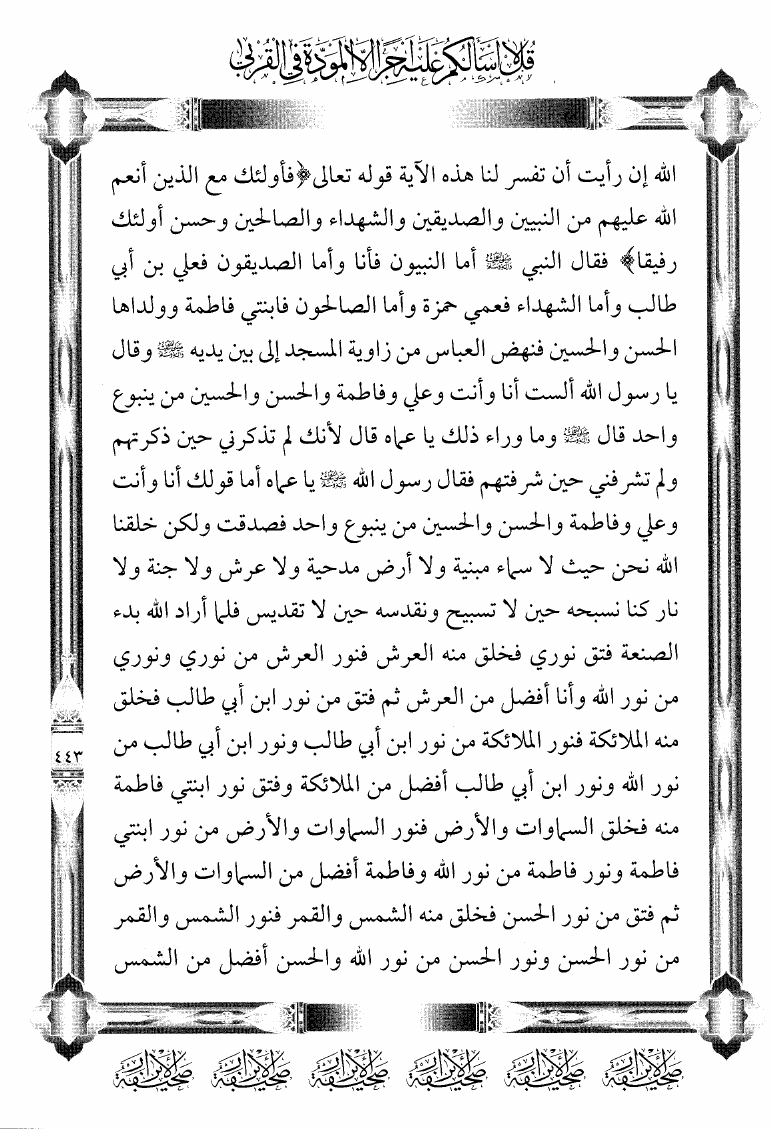 قل لا أسألكم عليه أجرا إلا المودة في القربى
الله إن رأيت أن تفسر لنا هذه الآية قوله تعالى ﴿فأولئك مع الذين أنعم
الله عليهم من النبيين والصديقين والشهداء والصالحين وحسن أولئك
رفيقا﴾ فقال النبي ﷺ أما النبيون فأنا وأما الصديقون فعلي بن أبي
طالب وأما الشهداء فعمي حمزة وأما الصالحون فابنتي فاطمة وولداها
الحسن والحسين فنهض العباس من زاوية المسجد إلى بين يديه ﷺ وقال
يا رسول الله ألست أنا وأنت وعلي وفاطمة والحسن والحسين من ينبوع
واحد قال ﷺ وما وراء ذلك يا عماه قال لأنك لم تذكرني حين ذكرتهم
ولم تشرفني حين شرفتهم فقال رسول الله ﷺ يا عماه أما قولك أنا وأنت
وعلي وفاطمة والحسن والحسين من ينبوع واحد فصدقت ولكن خلقنا
الله نحن حيث لا سماء مبنية ولا أرض مدحية ولا عرش ولا جنة ولا
نار كنا نسبحه حين لا تسبيح ونقدسه حين لا تقديس فلما أراد الله بدء
الصنعة فتق نوري فخلق منه العرش فنور العرش من نوري ونوري
من نور الله وأنا أفضل من العرش ثم فتق من نور ابن أبي طالب فخلق
منه الملائكة فنور الملائكة من نور ابن أبي طالب ونور ابن أبي طالب من
نور الله ونور ابن أبي طالب أفضل من الملائكة وفتق نور ابنتي فاطمة
منه فخلق السماوات والأرض فنور السماوات والأرض من نور ابنتي
فاطمة ونور فاطمة من نور الله وفاطمة أفضل من السماوات والأرض
ثم فتق من نور الحسن فخلق منه الشمس والقمر فنور الشمس والقمر
من نور الحسن ونور الحسن من نور الله والحسن أفضل من الشمس
٤٤٣
صحيفة الأبرار صحيفة الأبرار صحيفة الأبرار صحيفة الأبرار صحيفة الأبرار صحيفة الأبرار